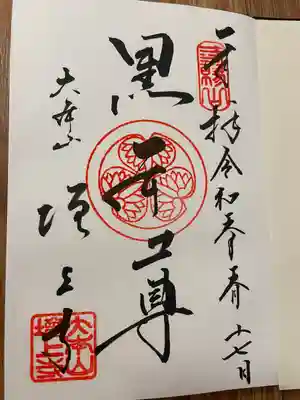 奉拝 令和 十七日
黒本尊
大本山
増上寺
三縁山
大本山
増上寺